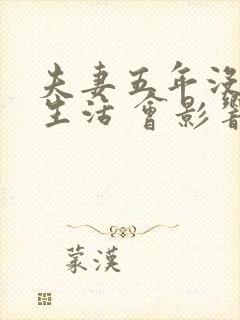 夫妻五年没
生活會影響
蒙漢